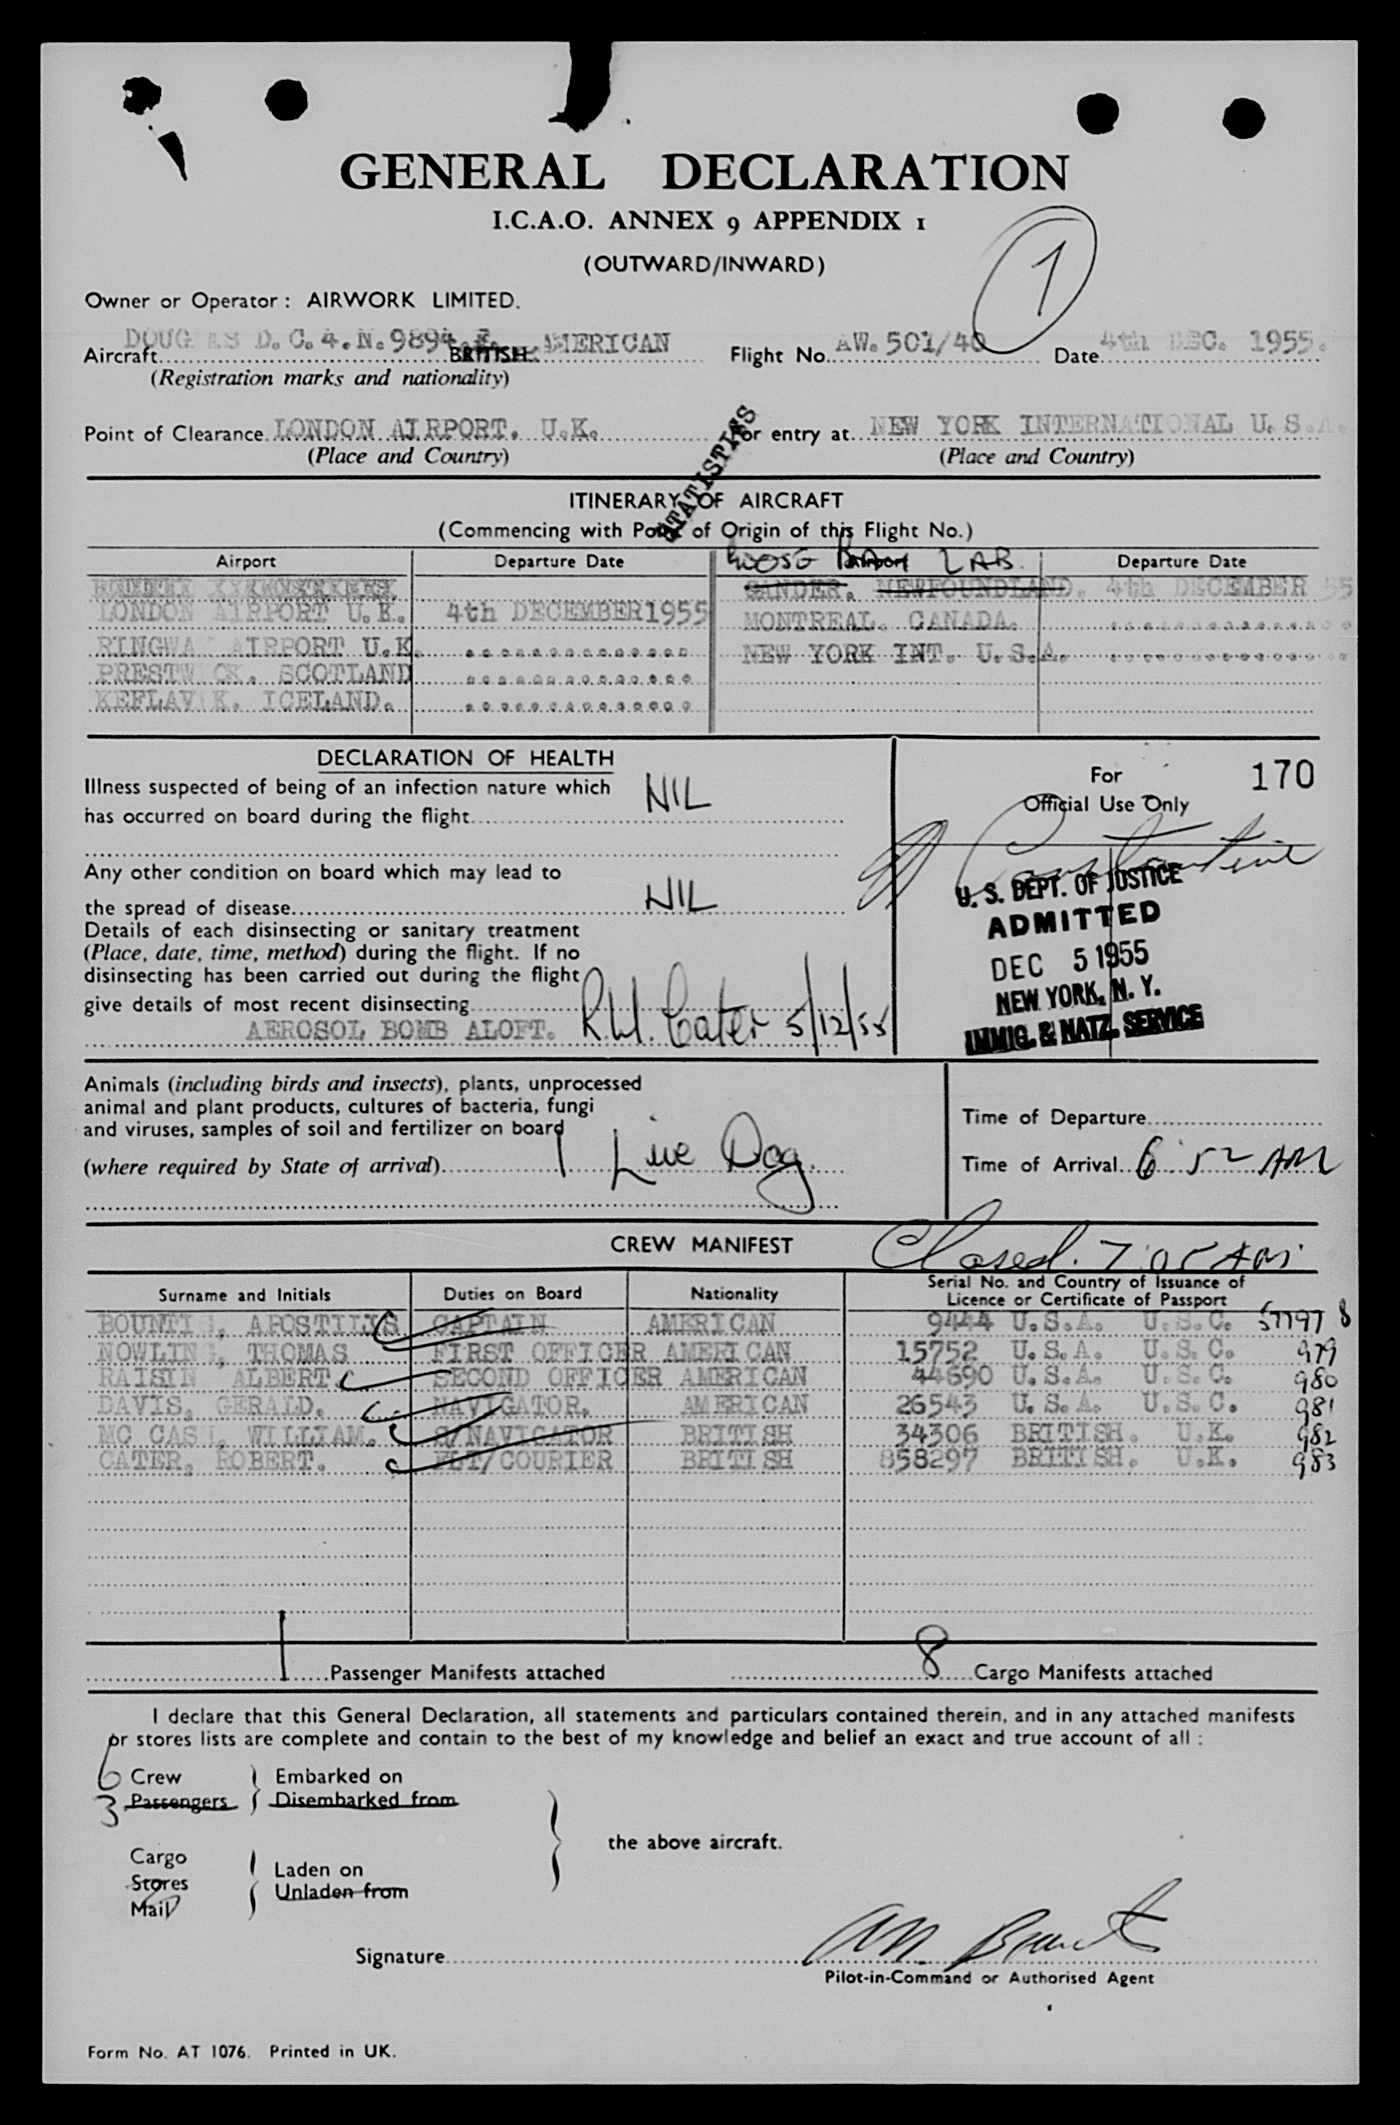 GENERAL DECLARATION
I.C.A.O. ANNEX 9 APPENDIX 1
(OUTWARD/INWARD)
1
Owner or Operator : AIRWORK LIMITED.
Aircraft DOUGLAS D.C.4.N.9894.F. BRITISH AMERICAN Flight No. AW.501/40 Date 4th DEC. 1955.
(Registration marks and nationality)
Point of Clearance LONDON AIRPORT. U.K. For entry at NEW YORK INTERNATIONAL U.S.A.
(Place and Country) (Place and Country)
STATISTICS
ITINERARY OF AIRCRAFT
(Commencing with Point of Origin of this Flight No.)
Airport Departure Date GOOSE BAY LAB. Airport Departure Date
GANDER. NEWFOUNDLAND. 4th DECEMBER 55
LONDON AIRPORT U.K. 4th DECEMBER 1955 MONTREAL. CANADA.
RINGWAY AIRPORT U.K. NEW YORK INT. U.S.A.
PRESTWICK. SCOTLAND
KEFLAVIK. ICELAND.
DECLARATION OF HEALTH
Illness suspected of being of an infection nature which
has occurred on board during the flight NIL
Any other condition on board which may lead to
the spread of disease NIL
Details of each disinsecting or sanitary treatment
(Place, date, time, method) during the flight. If no
disinsecting has been carried out during the flight
give details of most recent disinsecting
AEROSOL BOMB ALOFT. R.W. Cater 5/12/55
For 170
Official Use Only
Constantine
U. S. DEPT. OF JUSTICE
ADMITTED
DEC 5 1955
NEW YORK, N. Y.
IMMIG. & NATZ. SERVICE
Animals (including birds and insects), plants, unprocessed
animal and plant products, cultures of bacteria, fungi
and viruses, samples of soil and fertilizer on board
(where required by State of arrival) 1 Live Dog.
Time of Departure
Time of Arrival 6 52 AM
CREW MANIFEST Closed. 7:05 AM
Surname and Initials Duties on Board Nationality Serial No. and Country of Issuance of
Licence or Certificate of Passport
BOUNTIS, APOSTILIS CAPTAIN AMERICAN 9444 U.S.A. U.S.C. 57797 8
NOWLING, THOMAS FIRST OFFICER AMERICAN 15752 U.S.A. U.S.C. 979
RAISIN ALBERT. SECOND OFFICER AMERICAN 44690 U.S.A. U.S.C. 980
DAVIS, GERALD. NAVIGATOR. AMERICAN 26543 U.S.A. U.S.C. 981
MC CASH, WILLIAM. S/NAVIGATOR BRITISH 34306 BRITISH. U.K. 982
CATER, ROBERT. FLT/COURIER BRITISH 858297 BRITISH. U.K. 983
1 Passenger Manifests attached 8 Cargo Manifests attached
I declare that this General Declaration, all statements and particulars contained therein, and in any attached manifests
or stores lists are complete and contain to the best of my knowledge and belief an exact and true account of all :
6 Crew Embarked on
3 Passengers Disembarked from
the above aircraft.
Cargo
Stores Laden on
Mail Unladen from
Signature
Pilot-in-Command or Authorised Agent
Form No. AT 1076. Printed in UK.